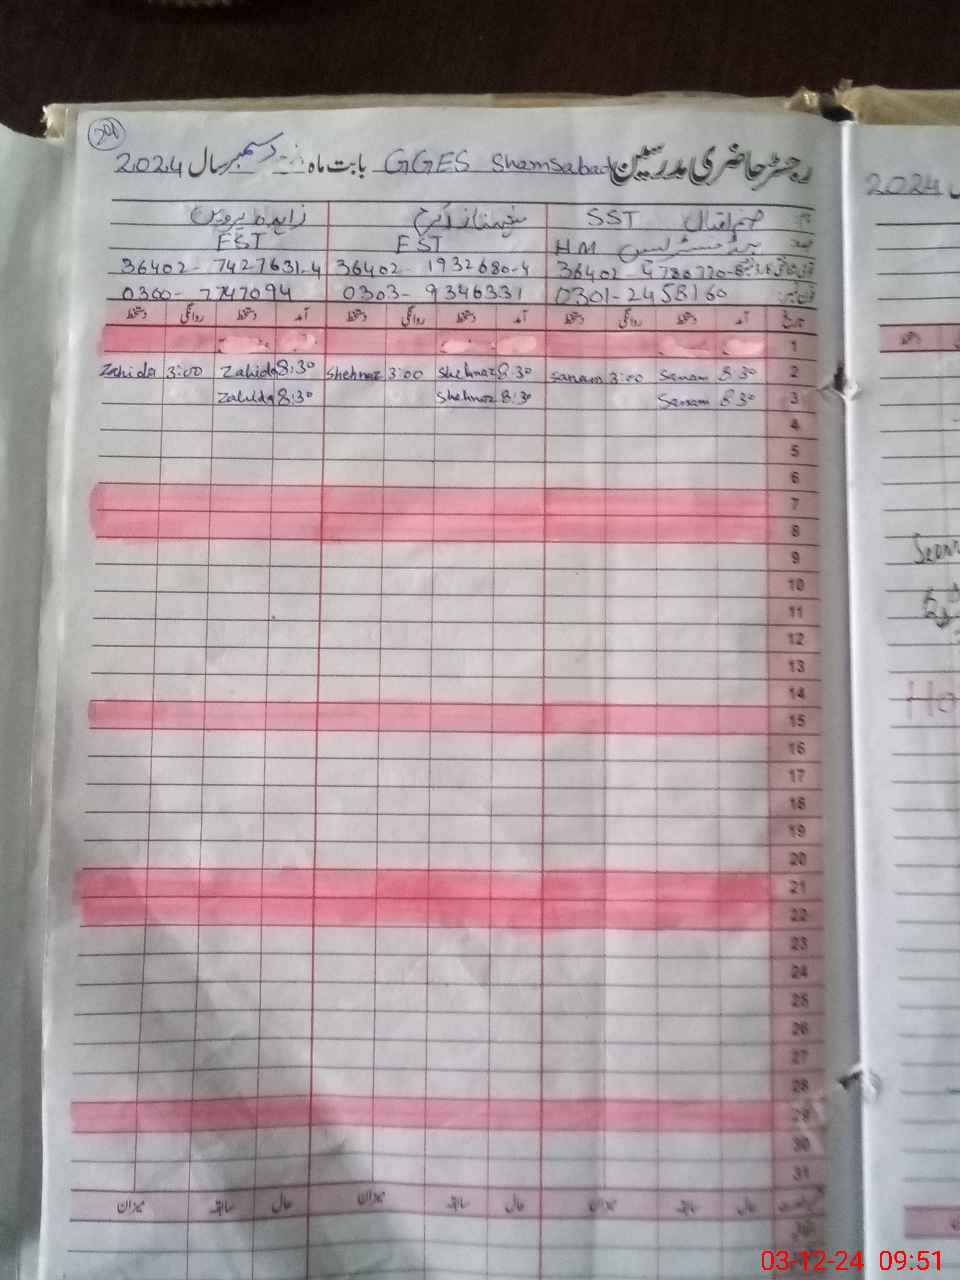 201
رجسٹر حاضری مدرسین GGES Shamsabad بابت ماہ دسمبر سال 2024
نام صنم اقبال SST زاہدہ پروین
عہدہ ہیڈ مسٹریس HM EST EST
36402- 4780720- 36402- 1932680-4 36402- 7427631-4
0301-2458160 0303-9346331 0300-7747094
تاریخ آمد دستخط روانگی دستخط آمد دستخط روانگی دستخط آمد دستخط روانگی دستخط
1
2 8:30 Sanam 3:00 Sanam 8:30 Shehnaz 3:00 Shehnaz 8:30 Zahida 3:00 Zahida
3 8:30 Sanam 8:30 Shehnaz 8:30 Zahida
4
5
6
7
8
9
10
11
12
13
14
15
16
17
18
19
20
21
22
23
24
25
26
27
28
29
30
31
حال سابقہ میزان حال سابقہ میزان حال سابقہ میزان
2024
Ho
03-12-24 09:51